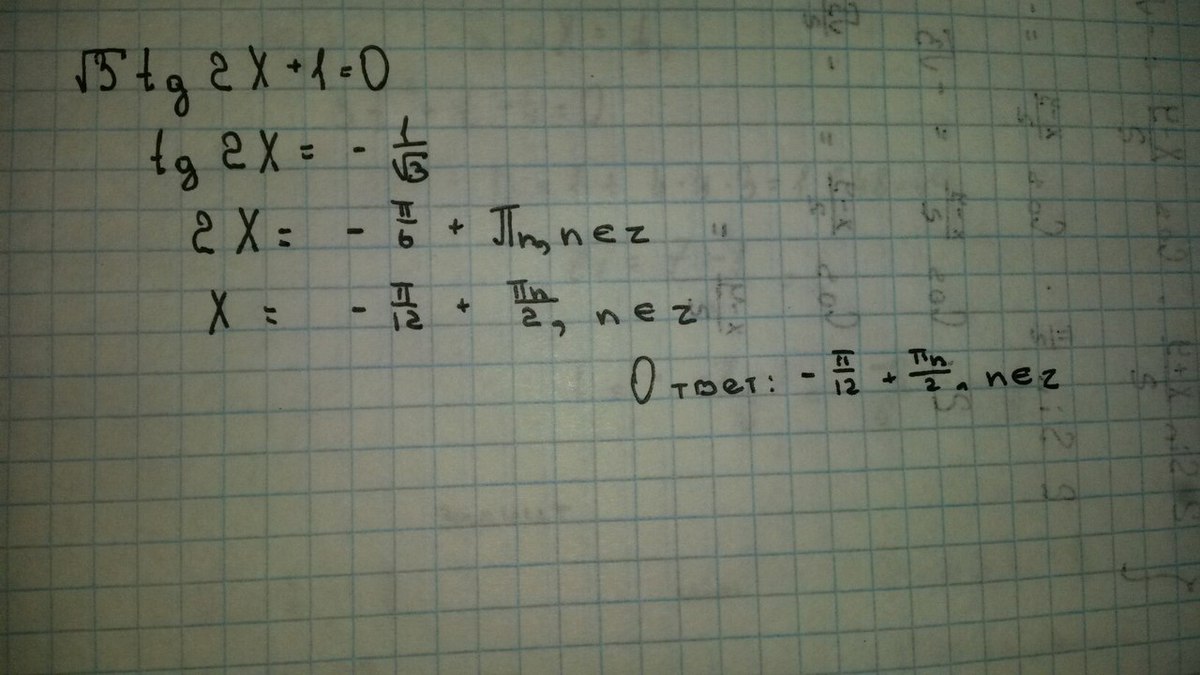 √3 tg 2X + 1 = 0
tg 2X = - 1/√3
2X = - π/6 + πn, n ∈ z
X = - π/12 + πn/2, n ∈ z
Ответ: - π/12 + πn/2, n ∈ z